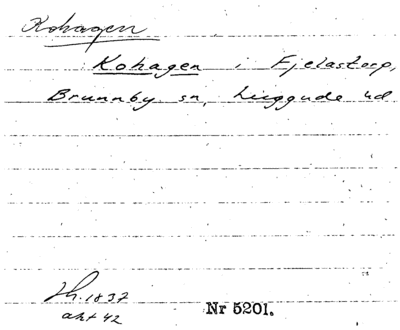 Kohagen
Kohagen i Fjelastorp,
Brunnby sn, Luggude hd
Lh. 1837
akt 42
Nr 5201.